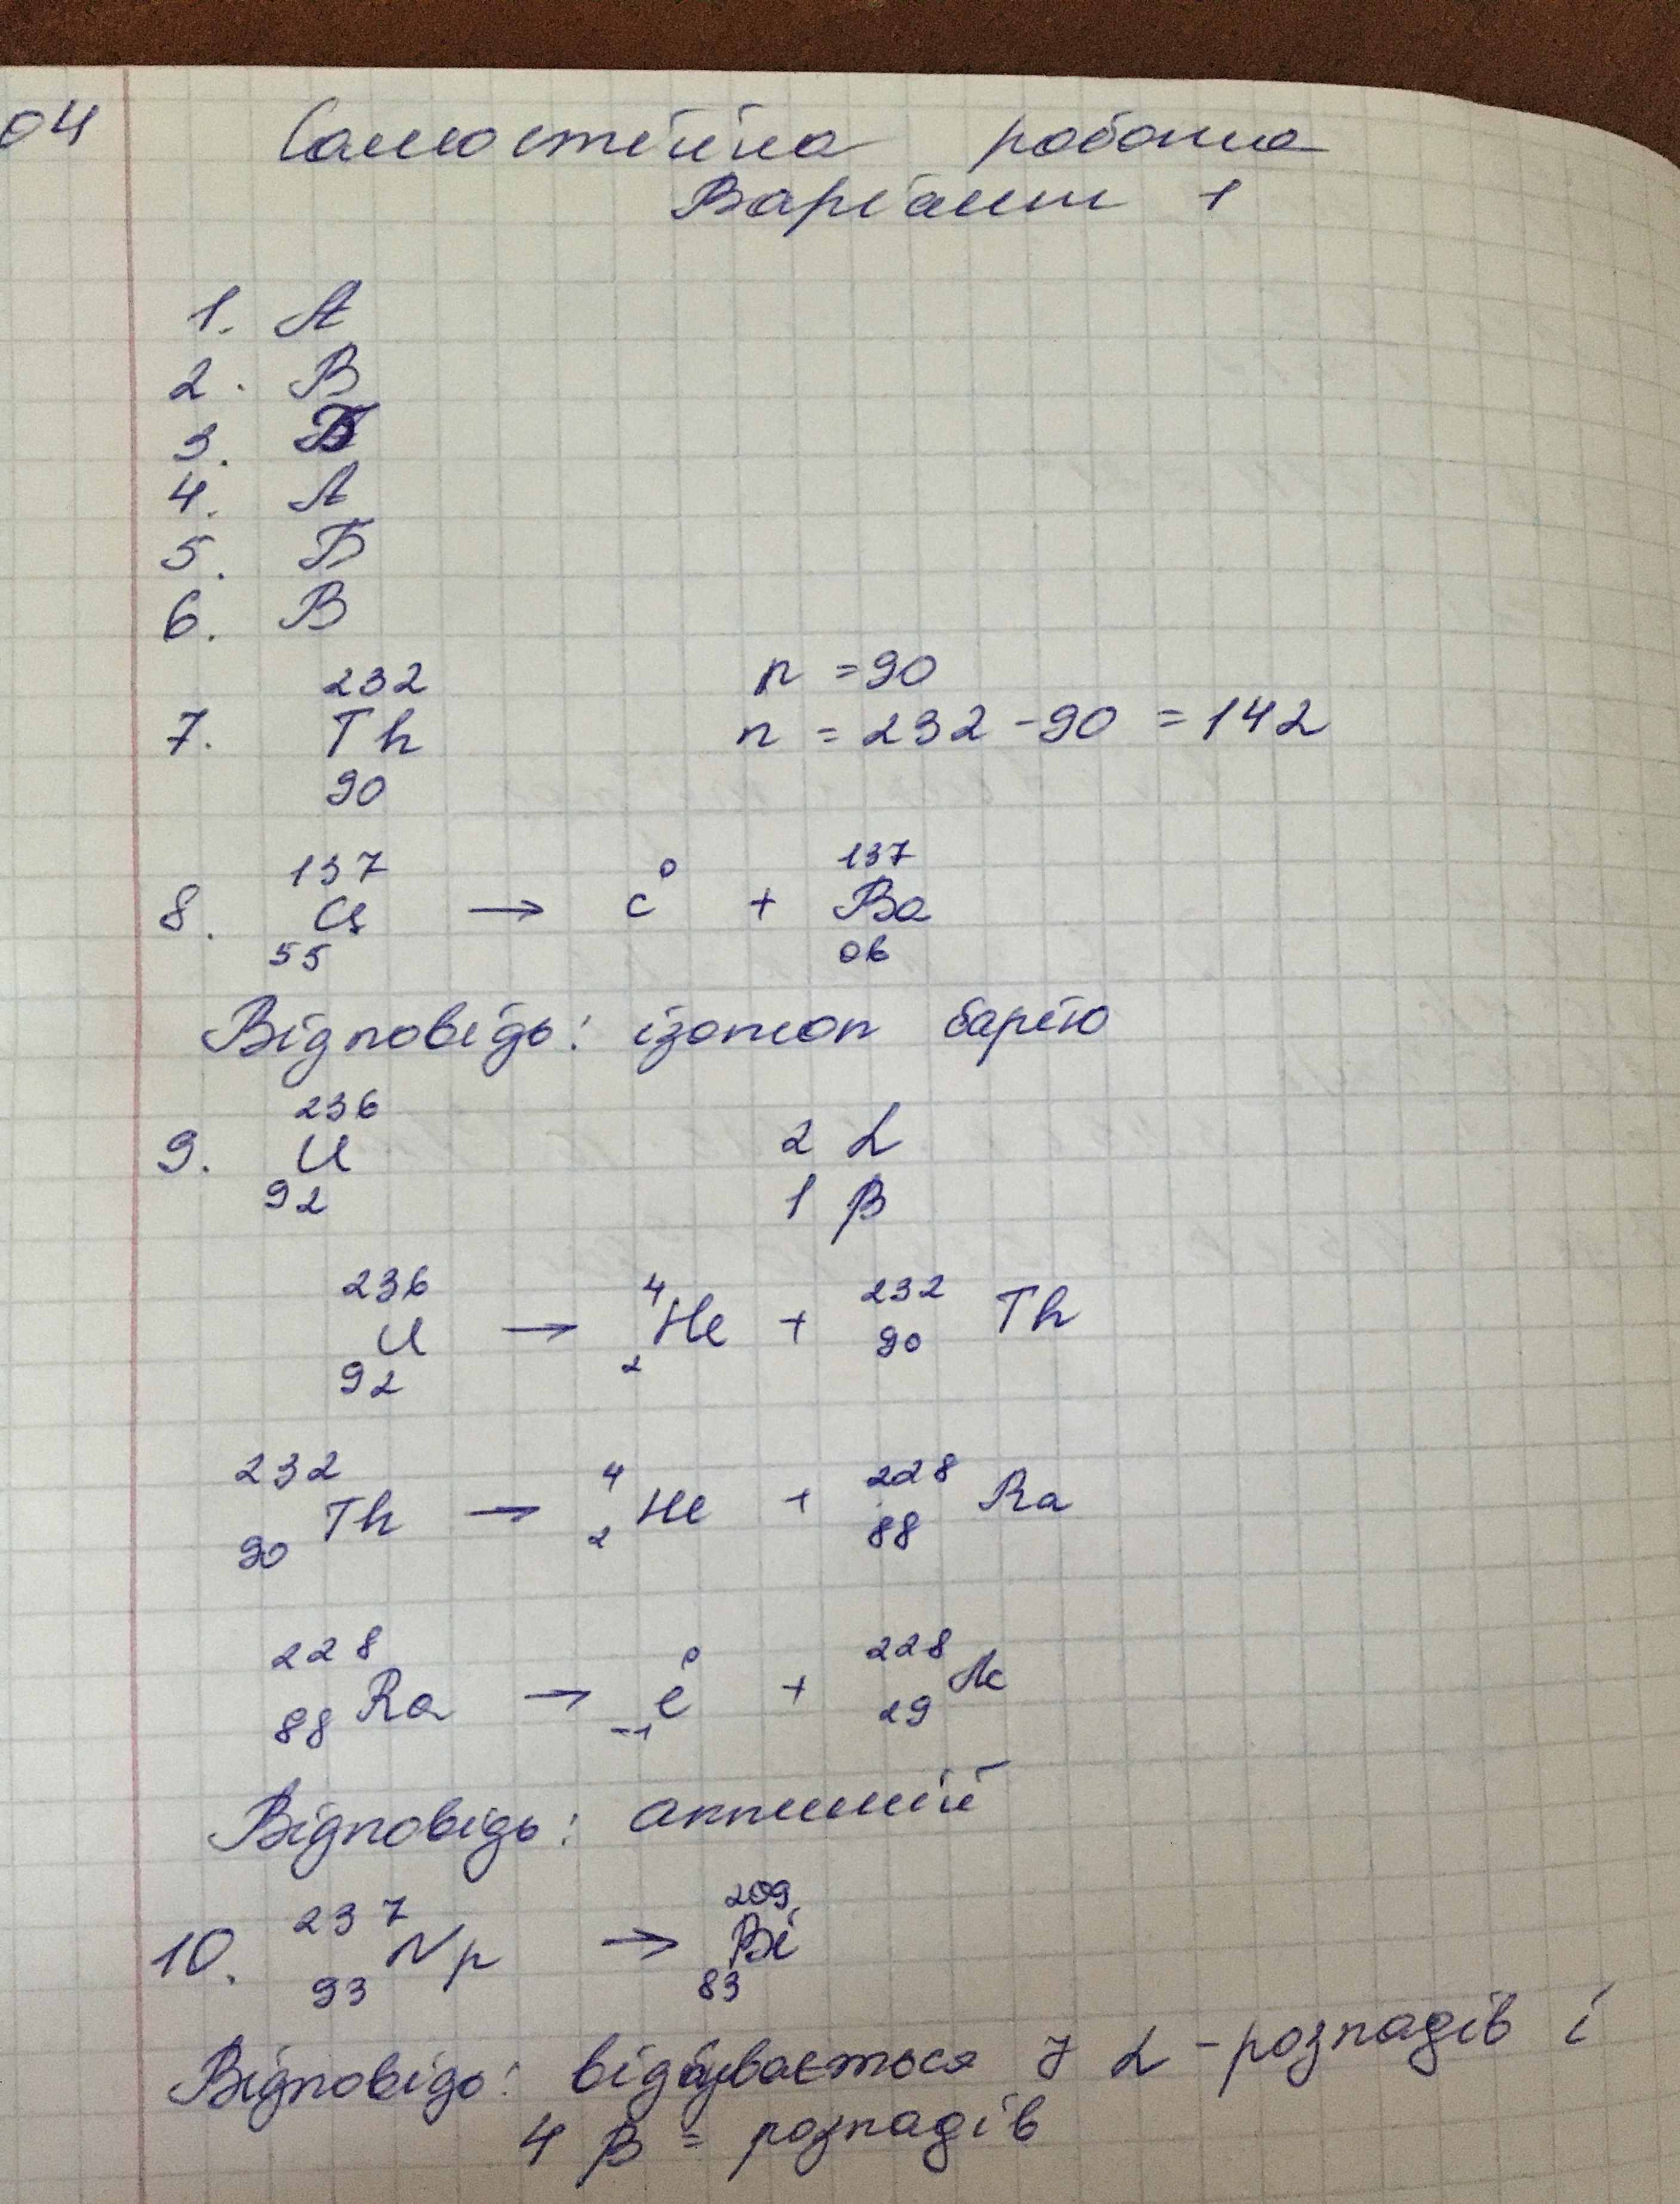 04
Самостійна робота
Варіант 1
1. А
2. В
3. Б
4. А
5. Б
6. В
7. ²³²₉₀Th n = 90
n = 232 - 90 = 142
8. ¹³⁷₅₅Cs → c⁰ + ¹³⁷₀₆Ba
Відповідь: ізотоп барію
9. ²³⁶₉₂U 2 α
1 β
²³⁶₉₂U → ⁴₂He + ²³²₉₀Th
²³²₉₀Th → ⁴₂He + ²²⁸₈₈Ra
²²⁸₈₈Ra → ⁰₋₁e + ²²⁸₂₉Ac
Відповідь: актиній
10. ²³⁷₉₃Np → ²⁰⁹₈₃Bi
Відповідь: відбувається 7 α - розпадів і
4 β - розпадів